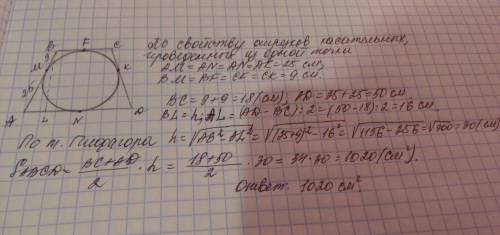 B F C
M K
9
25
A L N D
По свойству отрезков касательных,
проведенных из одной точки
AM = AN = AN = DK = 25 см,
BM = BF = CF = CK = 9 см.
BC = 9 + 9 = 18 (см), AD = 25 + 25 = 50 см.
BL = h, AL = (AD - BC) : 2 = (50 - 18) : 2 = 16 см.
По т. Пифагора h = √AB² - AL² = √(25+9)² - 16² = √1156 - 256 = √900 = 30 (см)
SABCD = BC + AD / 2 · h = 18 + 50 / 2 · 30 = 34 · 30 = 1020 (см²)
Ответ: 1020 см².